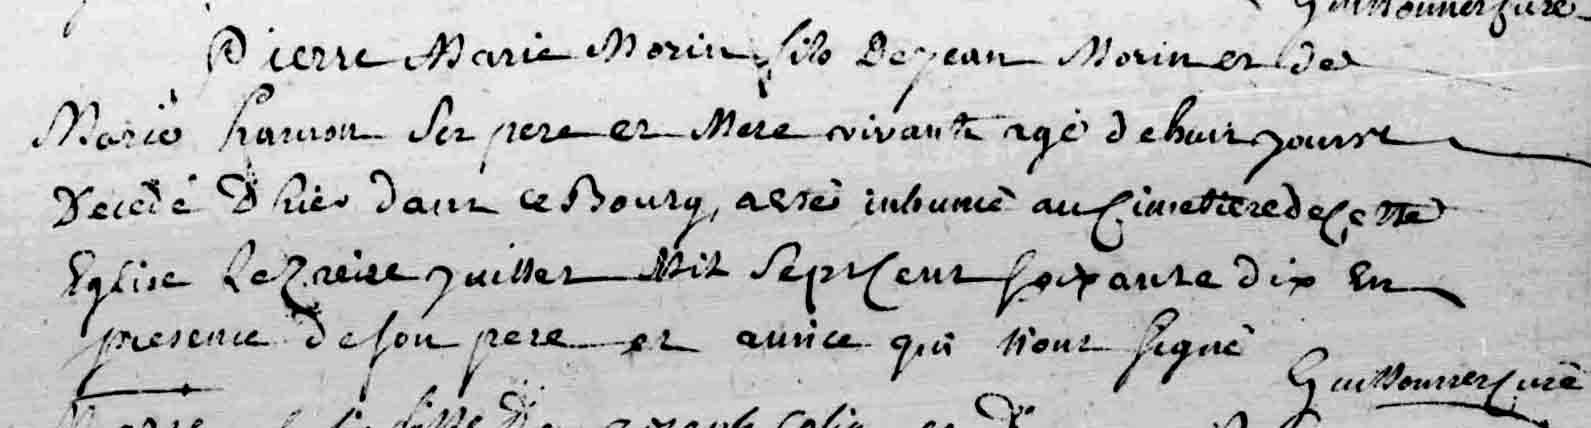 Pierre Marie Morin fils de jean Morin et de
Marie hamon ses pere et Mere vivants agé de huit jours
Decedé D'hier dans ce Bourg, a eté inhumé au Cimetiere de Cette
Eglise le treize juillet Mil Sept Cent soixante dix En
presence de son pere et autre qui n'ont signé